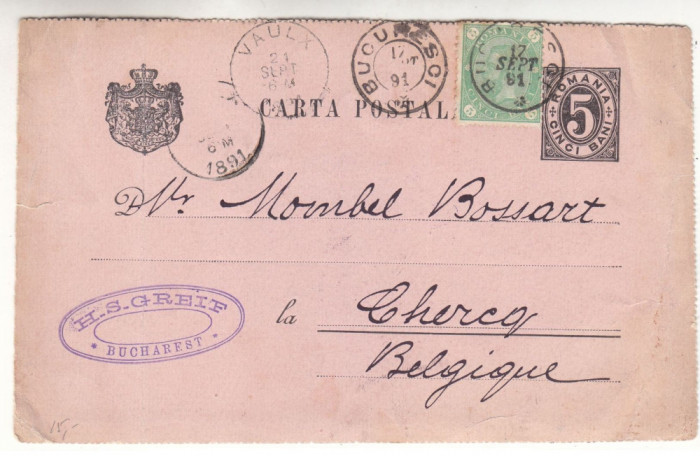 VAULX
21
SEPT
6 M
1891
6 M
BUCURESCI
17
91
ROMANIA
5 5
17
SEPT
91
CARTA POSTAL
ROMANIA
5
CINCI BANI
D Mombel Bossart
H. S. GREIF
BUCHAREST
la Chercq
Belgique
15,-